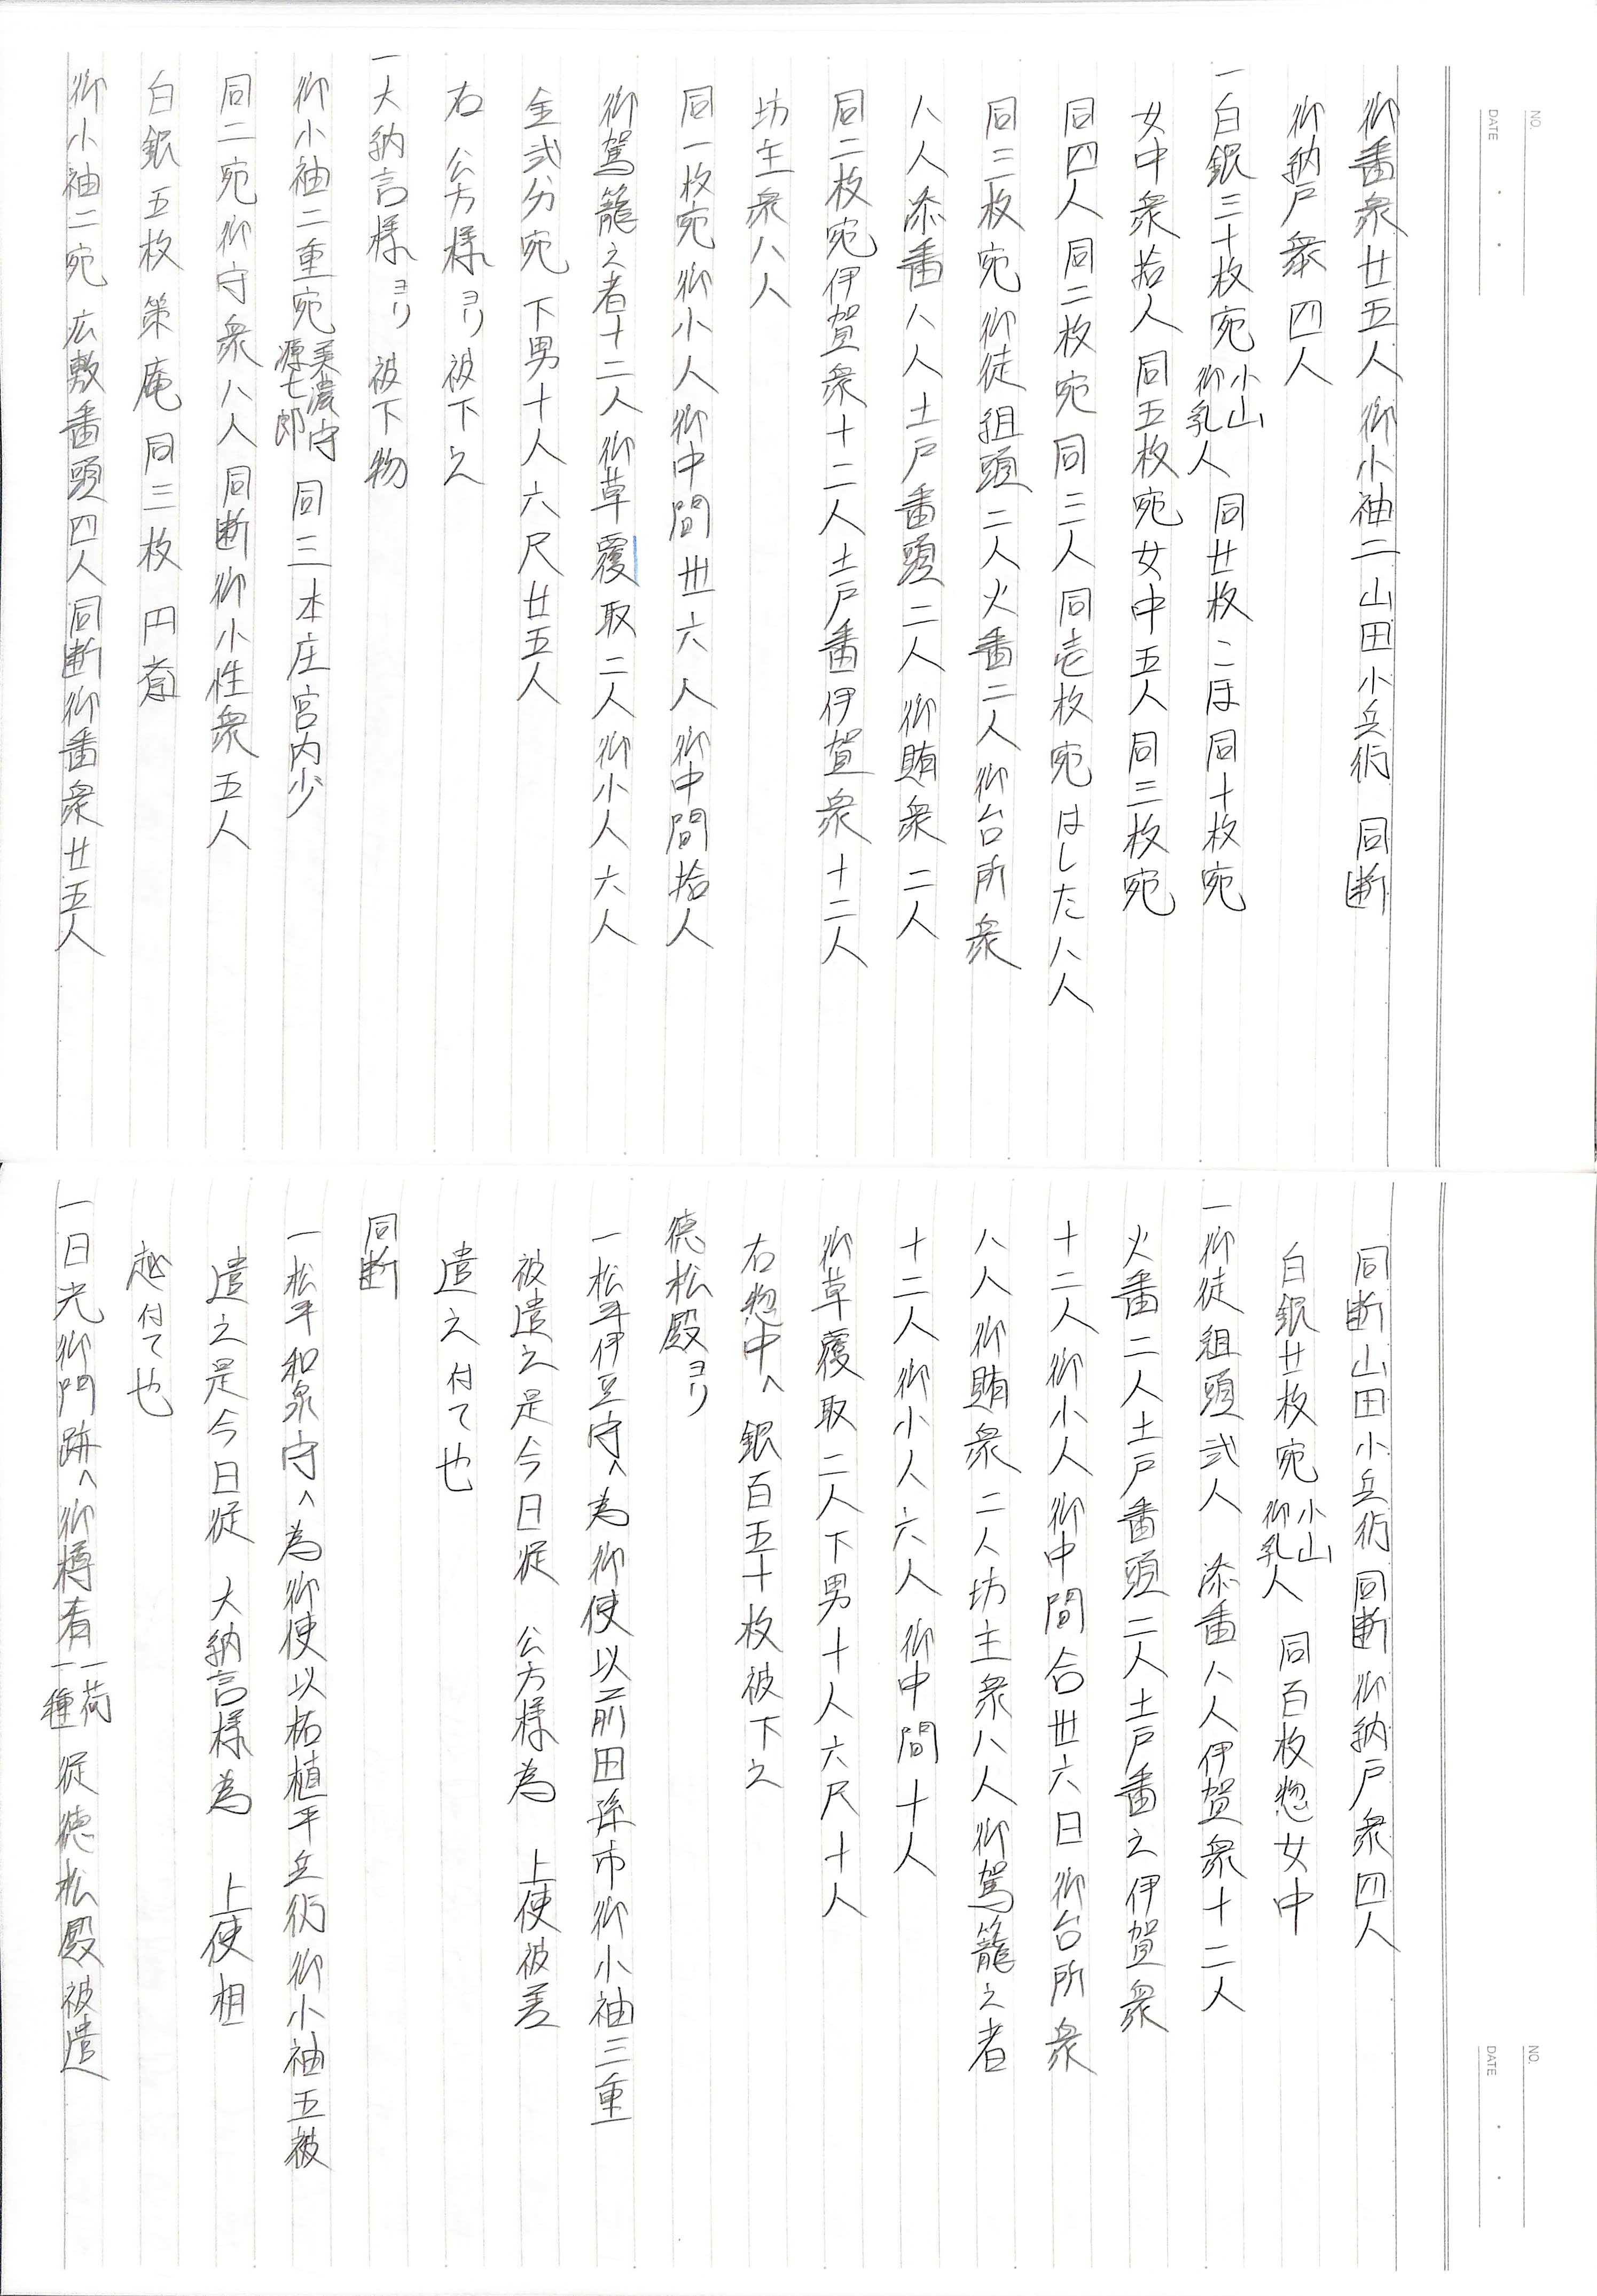 御番衆廿五人 御小袖二山田小兵衛 同断
御納戸衆 四人
一白銀三十枚宛 小山 御乳人 同廿枚こほ同十枚宛
女中衆拾人 同五枚宛女中五人同三枚宛
同四人 同二枚宛 同三人 同壱枚宛はした八人
同三枚宛 御徒組頭二人火番二人御台所衆
八人添番八人土戸番頭二人 御賄衆二人
同二枚宛伊賀衆十二人土戸番伊賀衆十二人
坊主衆八人
同一枚宛御小人御中間卅六人御中間拾人
御駕籠之者十二人御草覆取二人御小人六人
金弐分宛 下男十人六尺廿五人
右 公方様ヨリ被下之
一大納言様ヨリ 被下物
御小袖二重宛 美濃守 源七郎 同三本庄宮内少
同二宛御守衆八人同断御小性衆五人
白銀五枚策庵同三枚 円斎
御小袖二宛 広敷番頭四人同断御番衆廿五人
同断山田小兵衛 同断御納戸衆四人
白銀廿枚宛 小山 御乳人 同百枚惣女中
一御徒組頭弐人 添番八人伊賀衆十二人
火番二人土戸番頭二人土戸番之伊賀衆
十二人御小人御中間合卅六日御台所衆
八人御賄衆二人坊主衆八人御駕籠之者
十二人御小人六人御中間十人
御草覆取二人下男十人六尺十人
右惣中ヘ 銀百五十枚被下之
徳松殿ヨリ
一松平伊豆守ヘ為御使以前田孫市御小袖三重
被遣之是今日従 公方様為 上使被差
遣之付て也
同断
一松平和泉守ヘ為御使以柘植平兵衛御小袖五被
遣之是今日従 大納言様為 上使相
越付て也
一日光御門跡ヘ御樽肴 一荷 一種 従徳松殿被遣